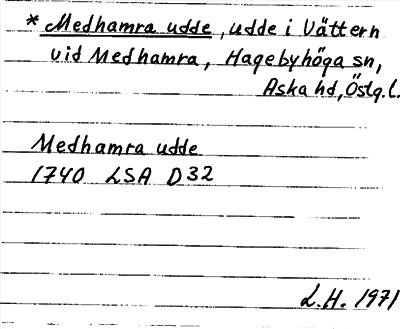 * Medhamra udde, udde i Vättern
vid Medhamra, Hagebyhöga sn,
Aska hd, Östg. l.
Medhamra udde
1740 LSA D32
L.H. 1971